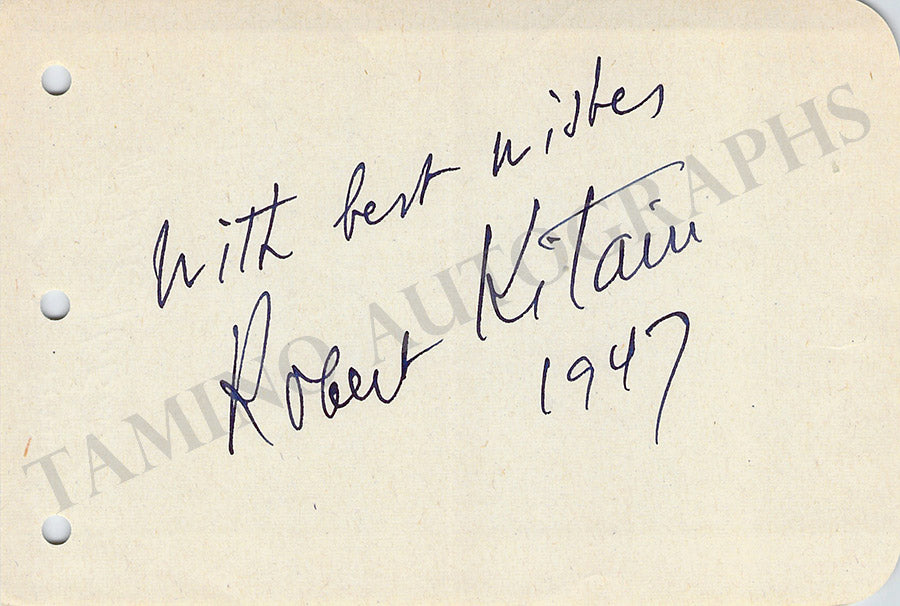 With best wishes
Robert Kitain
1947
TAMINO AUTOGRAPHS